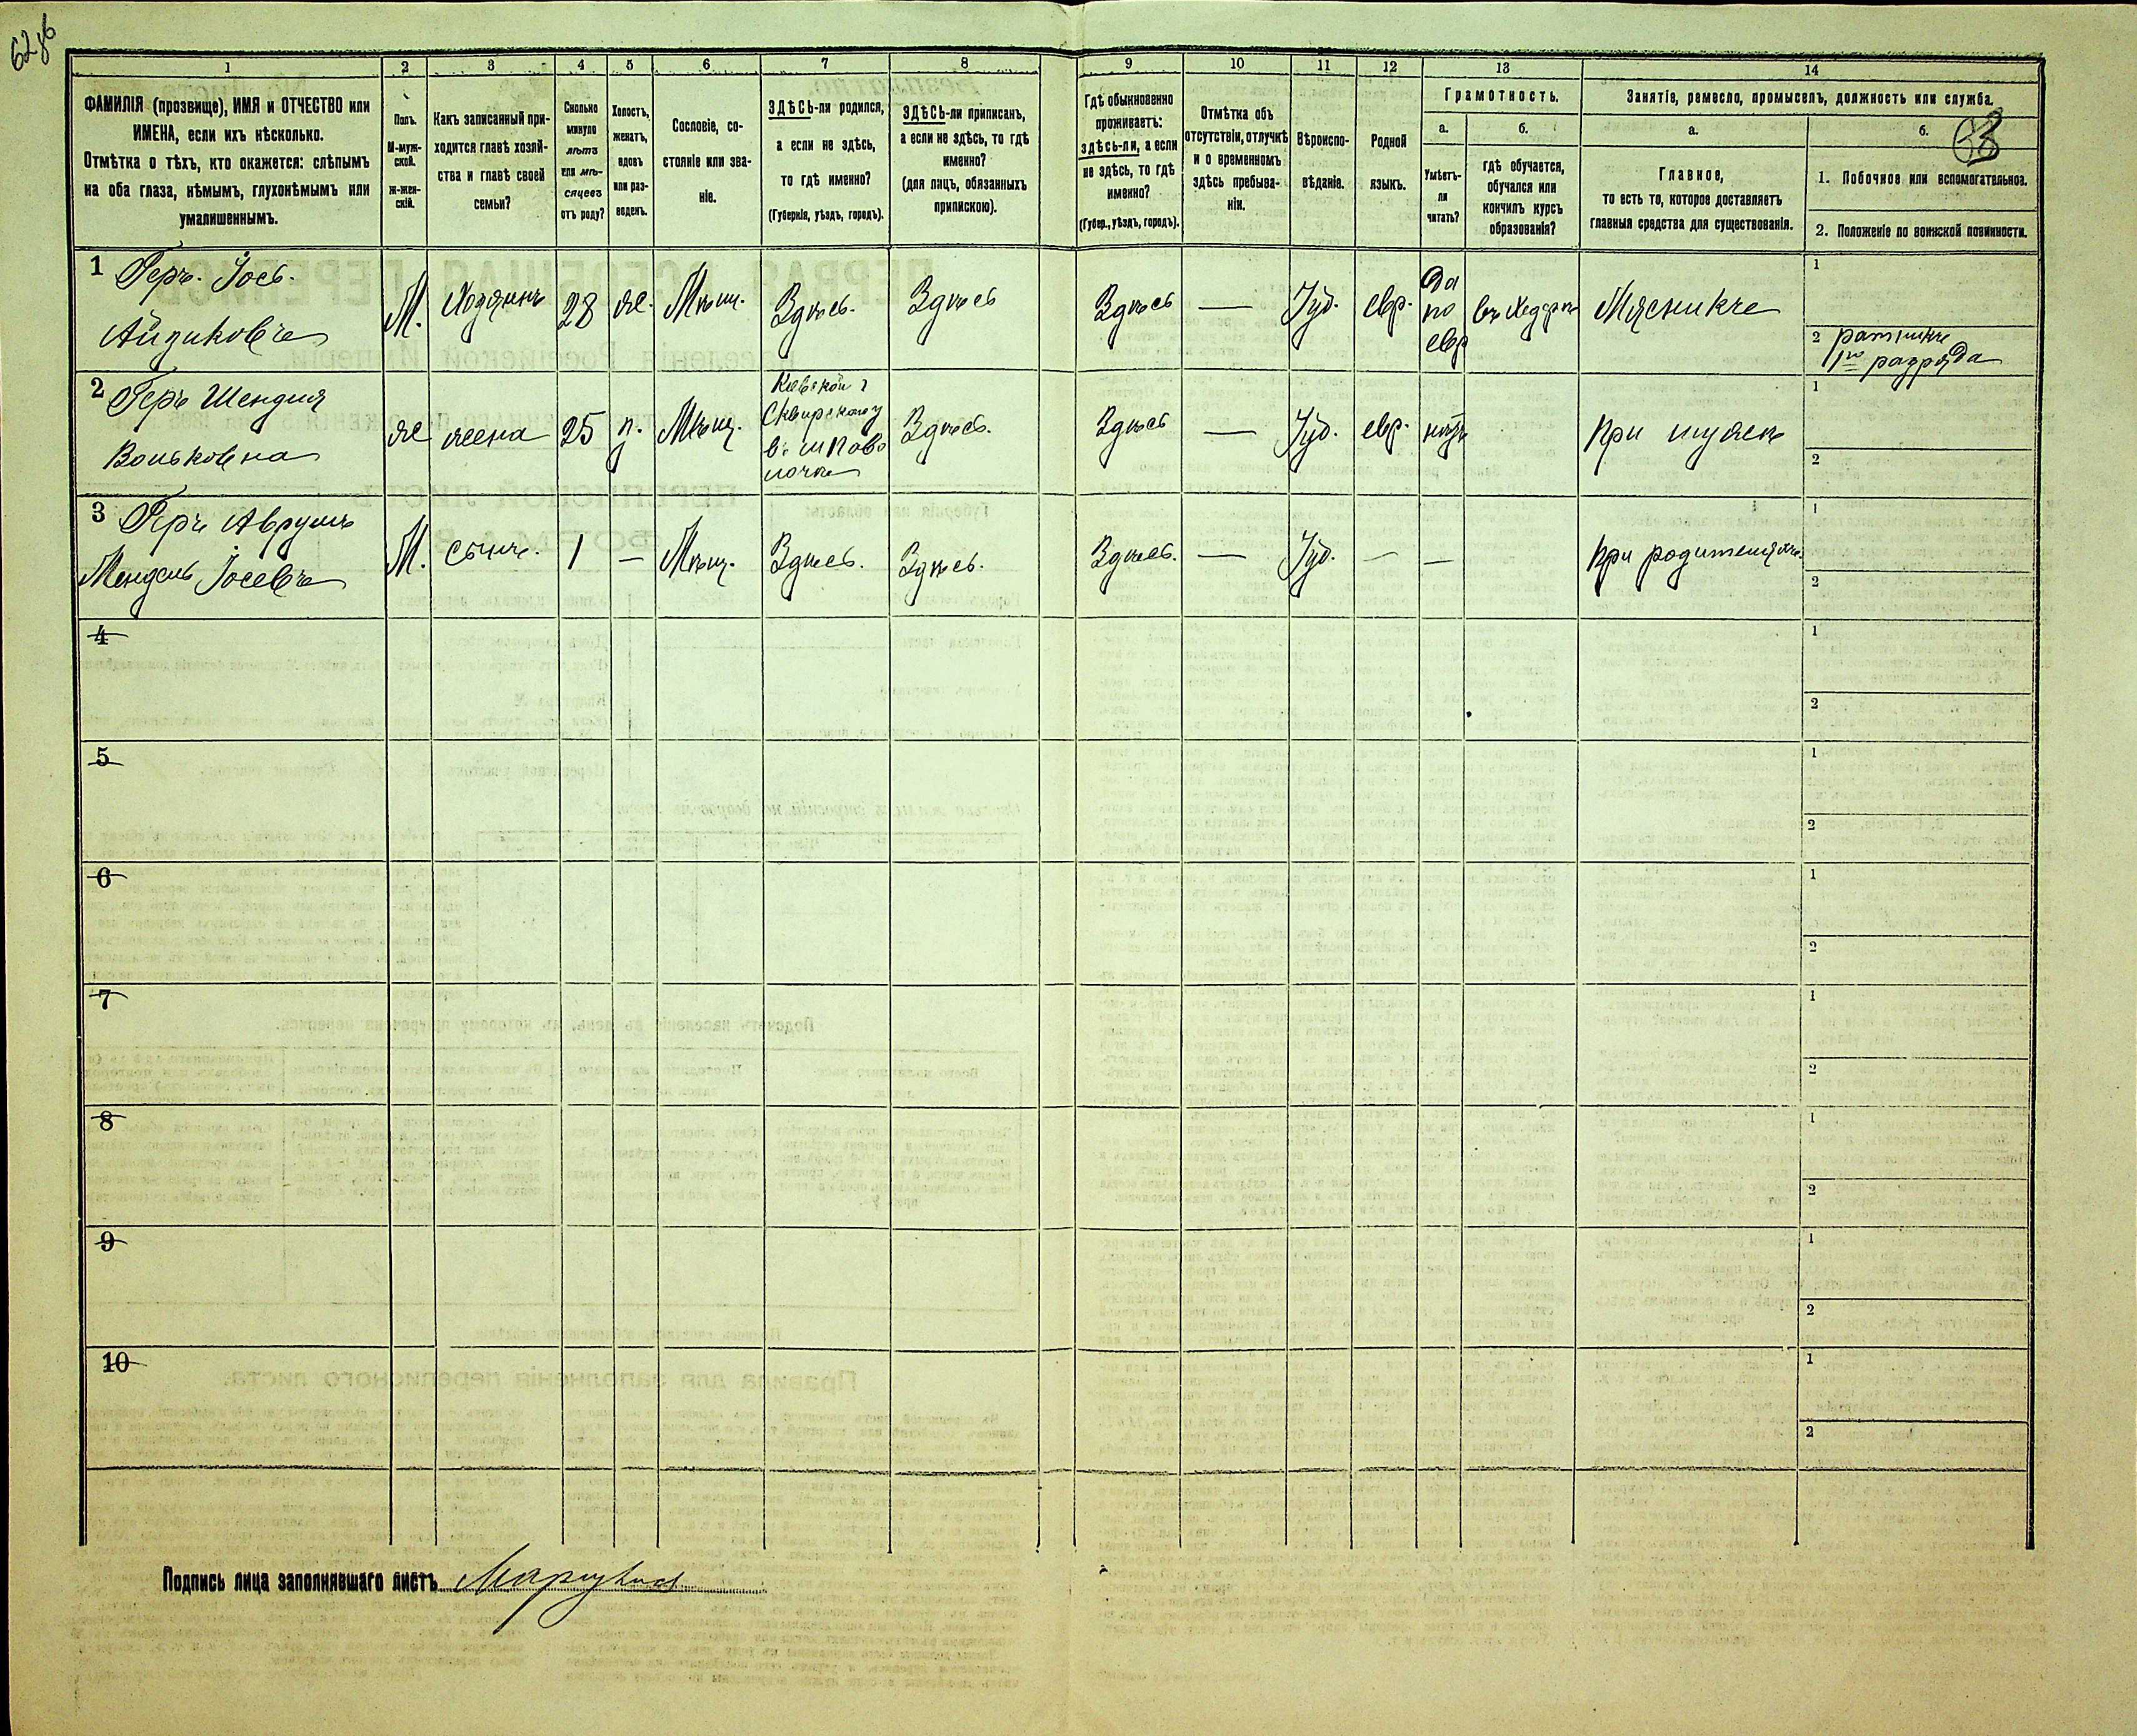 62 об
1 2 3 4 5 6 7 8 9 10 11 12 13 14
ФАМИЛІЯ (прозвище), ИМЯ и ОТЧЕСТВО или
ИМЕНА, если ихъ нѣсколько.
Отмѣтка о тѣхъ, кто окажется: слѣпымъ
на оба глаза, нѣмымъ, глухонѣмымъ или
умалишеннымъ.
Полъ.
М-муж-
ской.
ж-жен-
скій.
Какъ записанный при-
ходится главѣ хозяй-
ства и главѣ своей
семьи?
Сколько
минуло
лѣтъ
или мѣ-
сяцевъ
отъ роду?
Холостъ,
женатъ,
вдовъ
или раз-
веденъ.
Сословіе, со-
стояніе или зва-
ніе.
ЗДѢСЬ-ли родился,
а если не здѣсь,
то гдѣ именно?
(Губернія, уѣздъ, городъ).
ЗДѢСЬ-ли приписанъ,
а если не здѣсь, то гдѣ
именно?
(для лицъ, обязанныхъ
припискою).
Гдѣ обыкновенно
проживаетъ:
здѣсь-ли, а если
не здѣсь, то гдѣ
именно?
(Губер., уѣздъ, городъ).
Отмѣтка объ
отсутствіи, отлучкѣ
и о временномъ
здѣсь пребыва-
ніи.
Вѣроиспо-
вѣданіе.
Родной
языкъ.
Грамотность.
а.
Умѣетъ-
ли
читать?
б.
гдѣ обучается,
обучался или
кончилъ курсъ
образованія?
Занятіе, ремесло, промыселъ, должность или служба.
а.
Главное,
то есть то, которое доставляетъ
главныя средства для существованія.
б.
1. Побочное или вспомогательное.
2. Положеніе по воинской повинности.
1 Геръ Іось
Айзиковъ
М.
Хозяинъ
28
же.
Мѣщ.
Здѣсь.
Здѣсь
Здѣсь
—
Іуд.
евр.
Да
по
евр
въ Хедерѣ
Мясникъ
1
2 ратникъ
1го разряда
2 Геръ Шендля
Вольковна
же
жена
25
Мѣщ.
Кіевской г
Сквирского у
Здѣсь.
Здѣсь
—
Іуд.
евр.
нѣтъ
При мужѣ
1
2
3 Геръ Аврумъ
Мендель Іосевъ
М.
сынъ.
1
—
Мѣщ.
Здѣсь.
Здѣсь.
Здѣсь.
—
Іуд.
—
—
При родителяхъ
1
2
4
1
2
5
1
2
6
1
2
7
1
2
8
1
2
9
1
2
10
1
2
Подпись лица заполнявшаго листъ